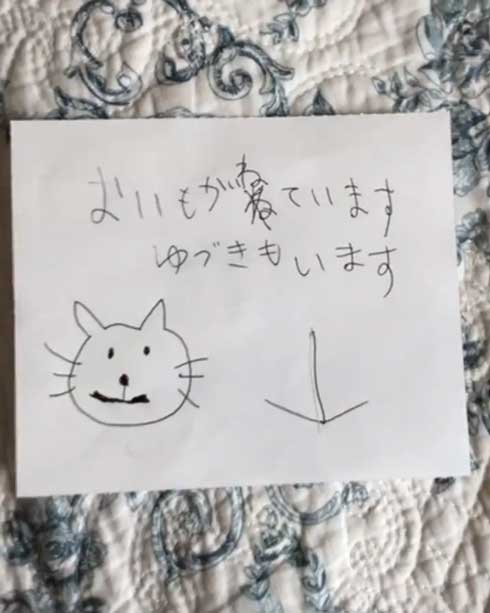 おいもが寝ています
ゆづきもいます